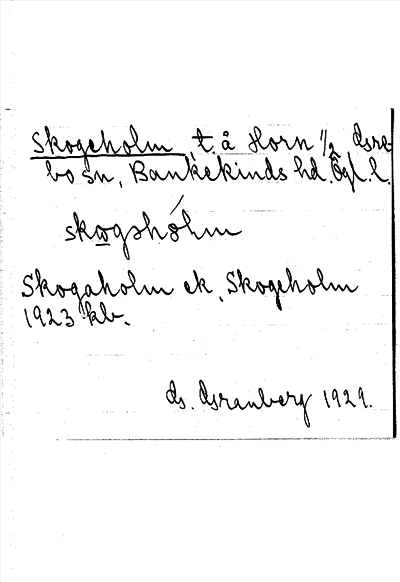 Skogeholm, t. å Horn 1/2 Grebo sn, Bankekinds hd. Ögl. l.
skogshólm
Skogaholm ek, Skogeholm
1923 kb.
G. Granberg 1929.